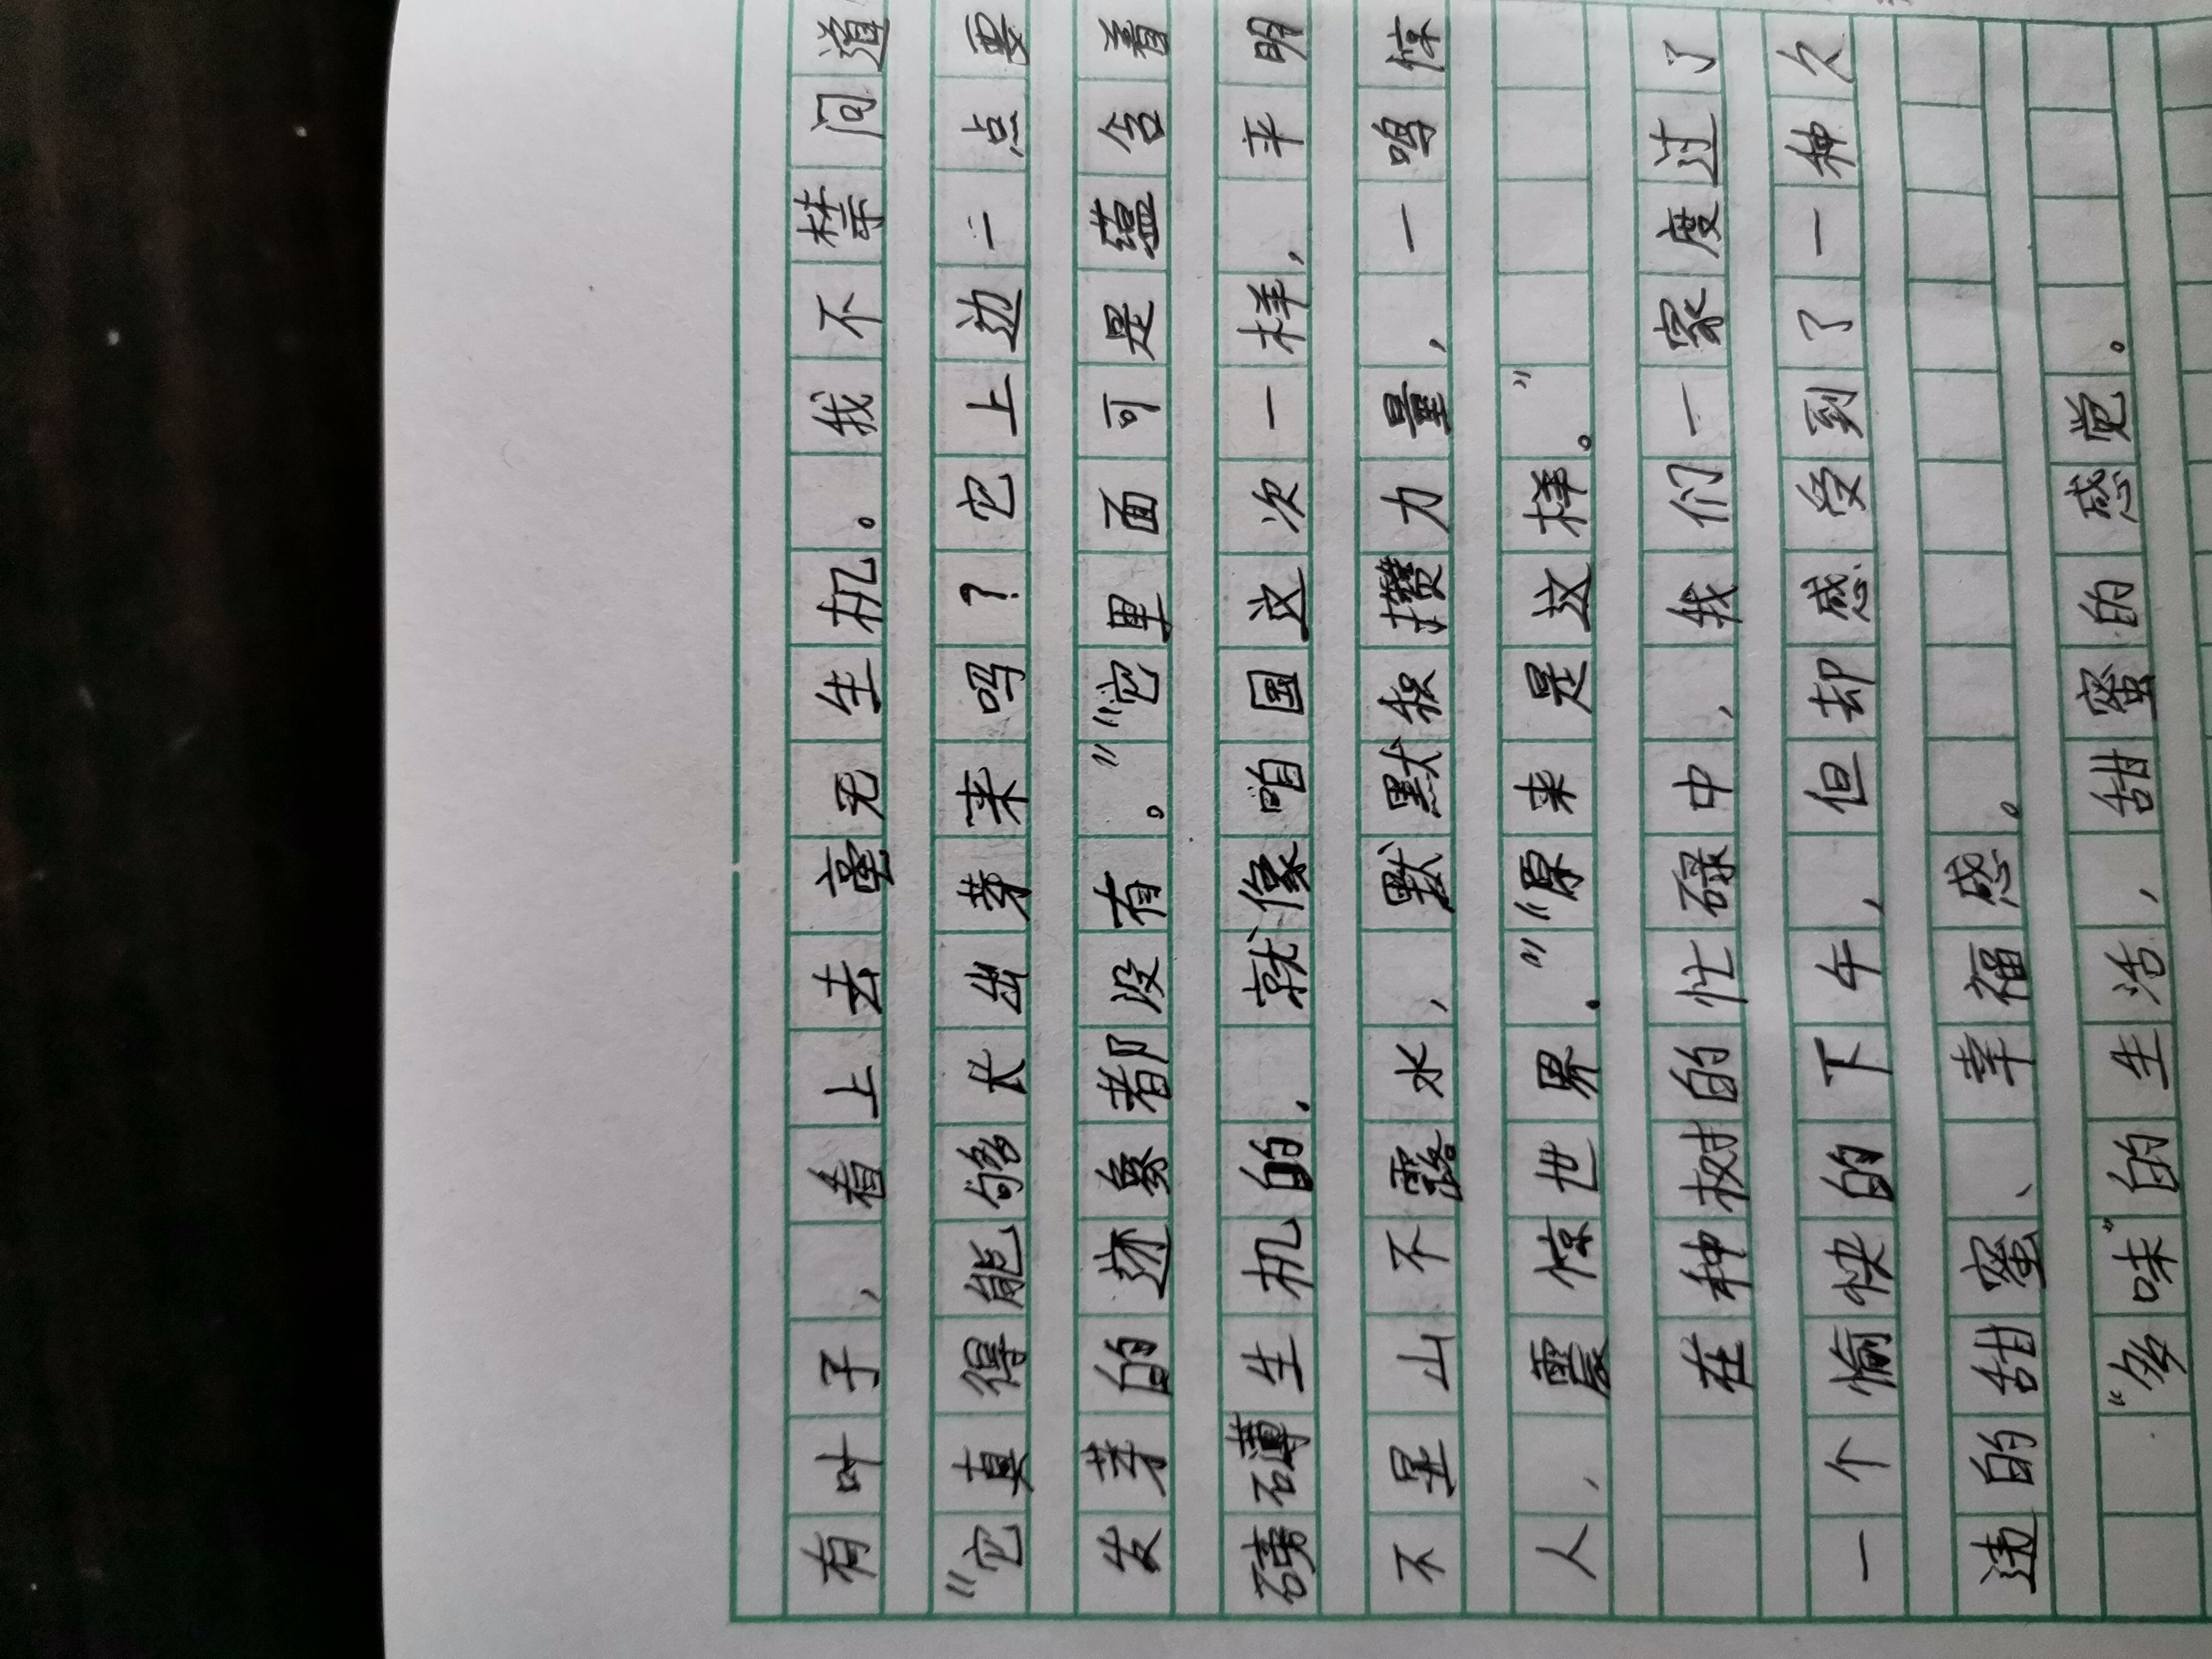 有叶子，看上去毫无生机。我不禁问道
“它真得能够长出芽来吗？它上边一点要
发芽的迹象都没有。”“它里面可是蕴含着
磅礴生机的，就像咱国这次一样，平明
不显山不露水，默默积攒力量，一鸣惊
人，震惊世界.”“原来是这样。”
在种树的忙碌中，我们一家度过了
一个愉快的下午，但却感受到了一种久
违的甜蜜、幸福感。
“多味”的生活，甜蜜的感觉。